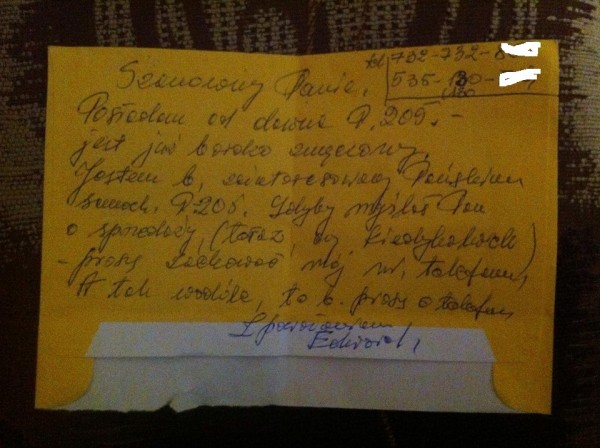 tel 732-732-8
535-130-
130
Szanowny Panie,
Posiadam od dawna P. 205.-
jest już bardzo zmęczony,
Jestem b. zainteresowany Pańskim
samoch. P 205. Gdyby myślał Pan
o sprzedaży, (teraz, czy kiedykolwiek)
- proszę zachować mój nr. telefonu,
A tak wogóle, to b. proszę o telefon,
Z poważaniem
Edward,